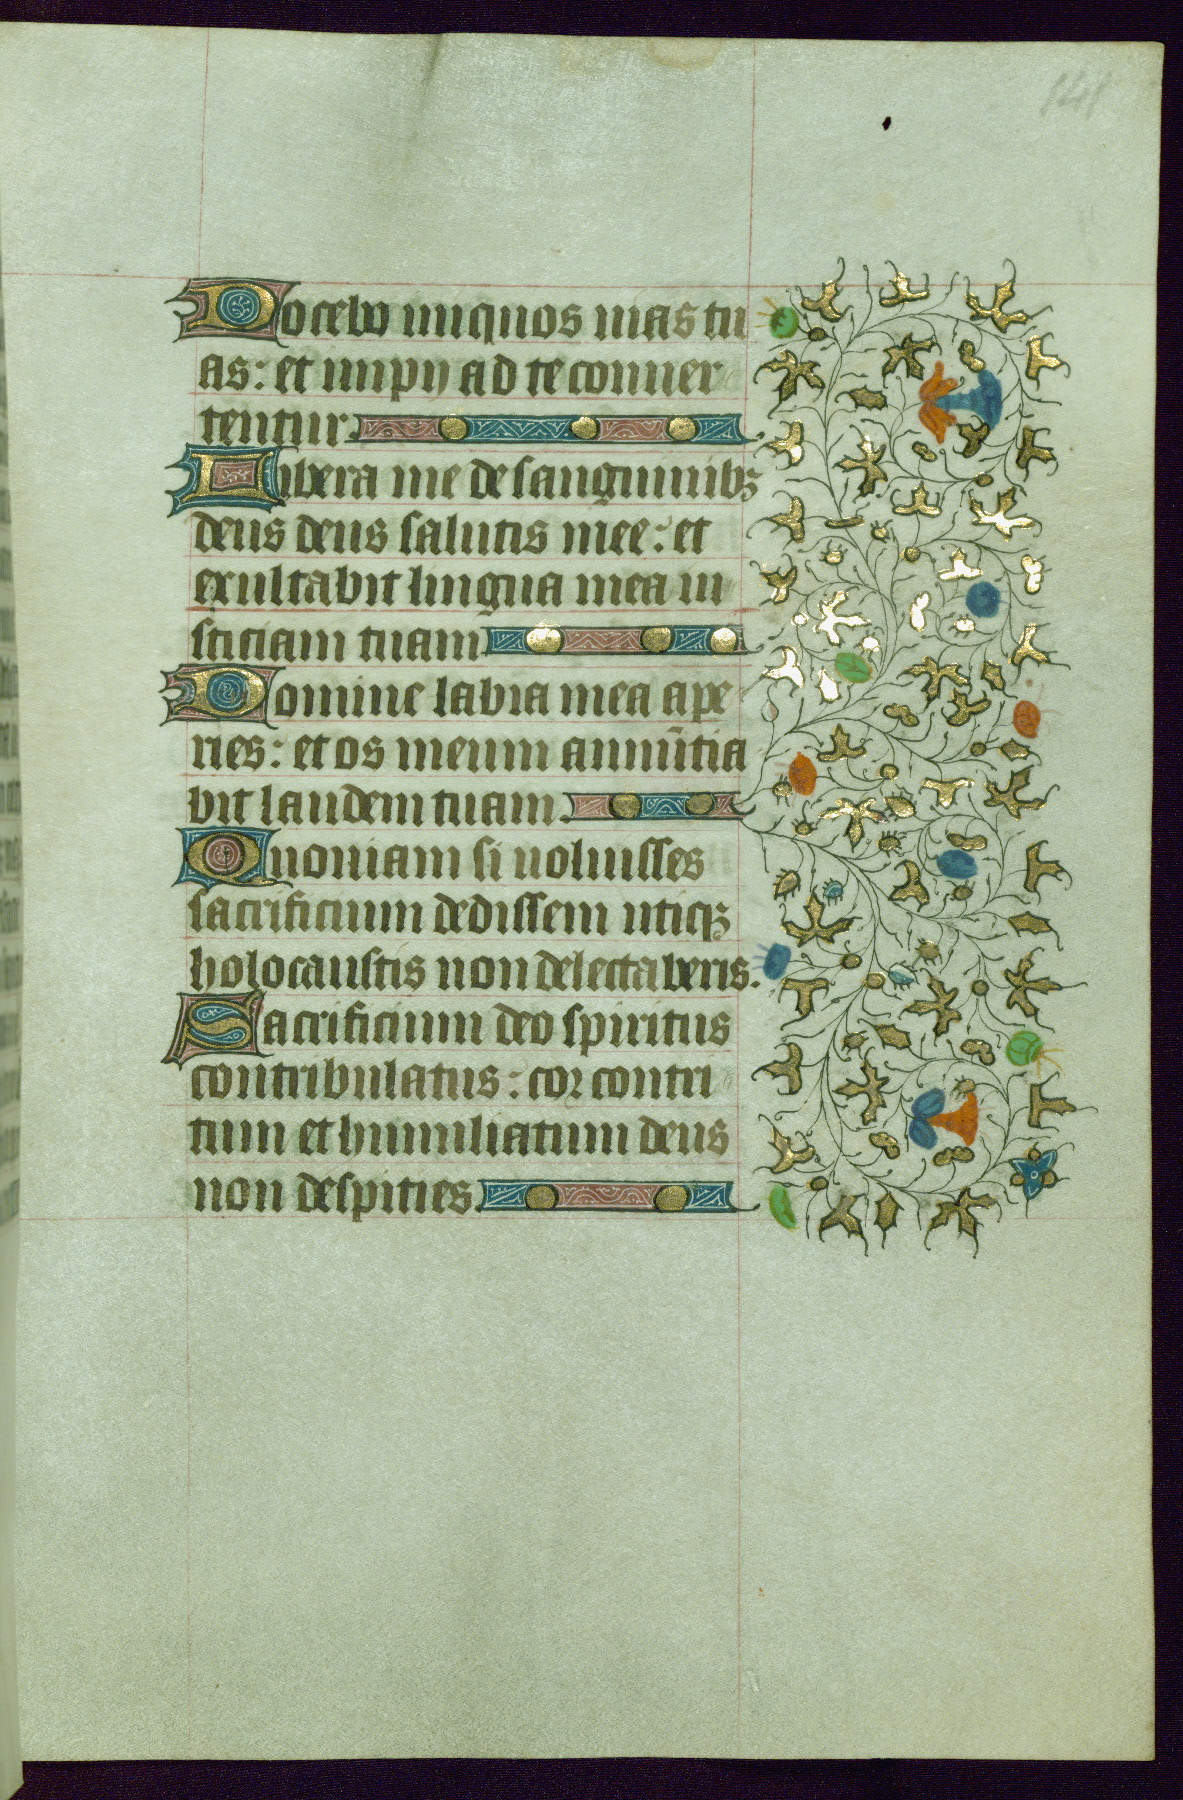 Docebo iniquos uias tu
as: et impij ad te conuer
tentur.
Libera me de sanguinibꝫ
deus deus salutis mee: et
exultabit lingua mea iu
sticiam tuam.
Domine labia mea ape
ries: et os meum annūtia
bit laudem tuam.
Quoniam si uoluisses
sacrificium dedissem utiqꝫ
holocaustis non delectaberis.
Sacrificium deo spiritus
contribulatus: cor contri
tum et humiliatum deus
non despities.